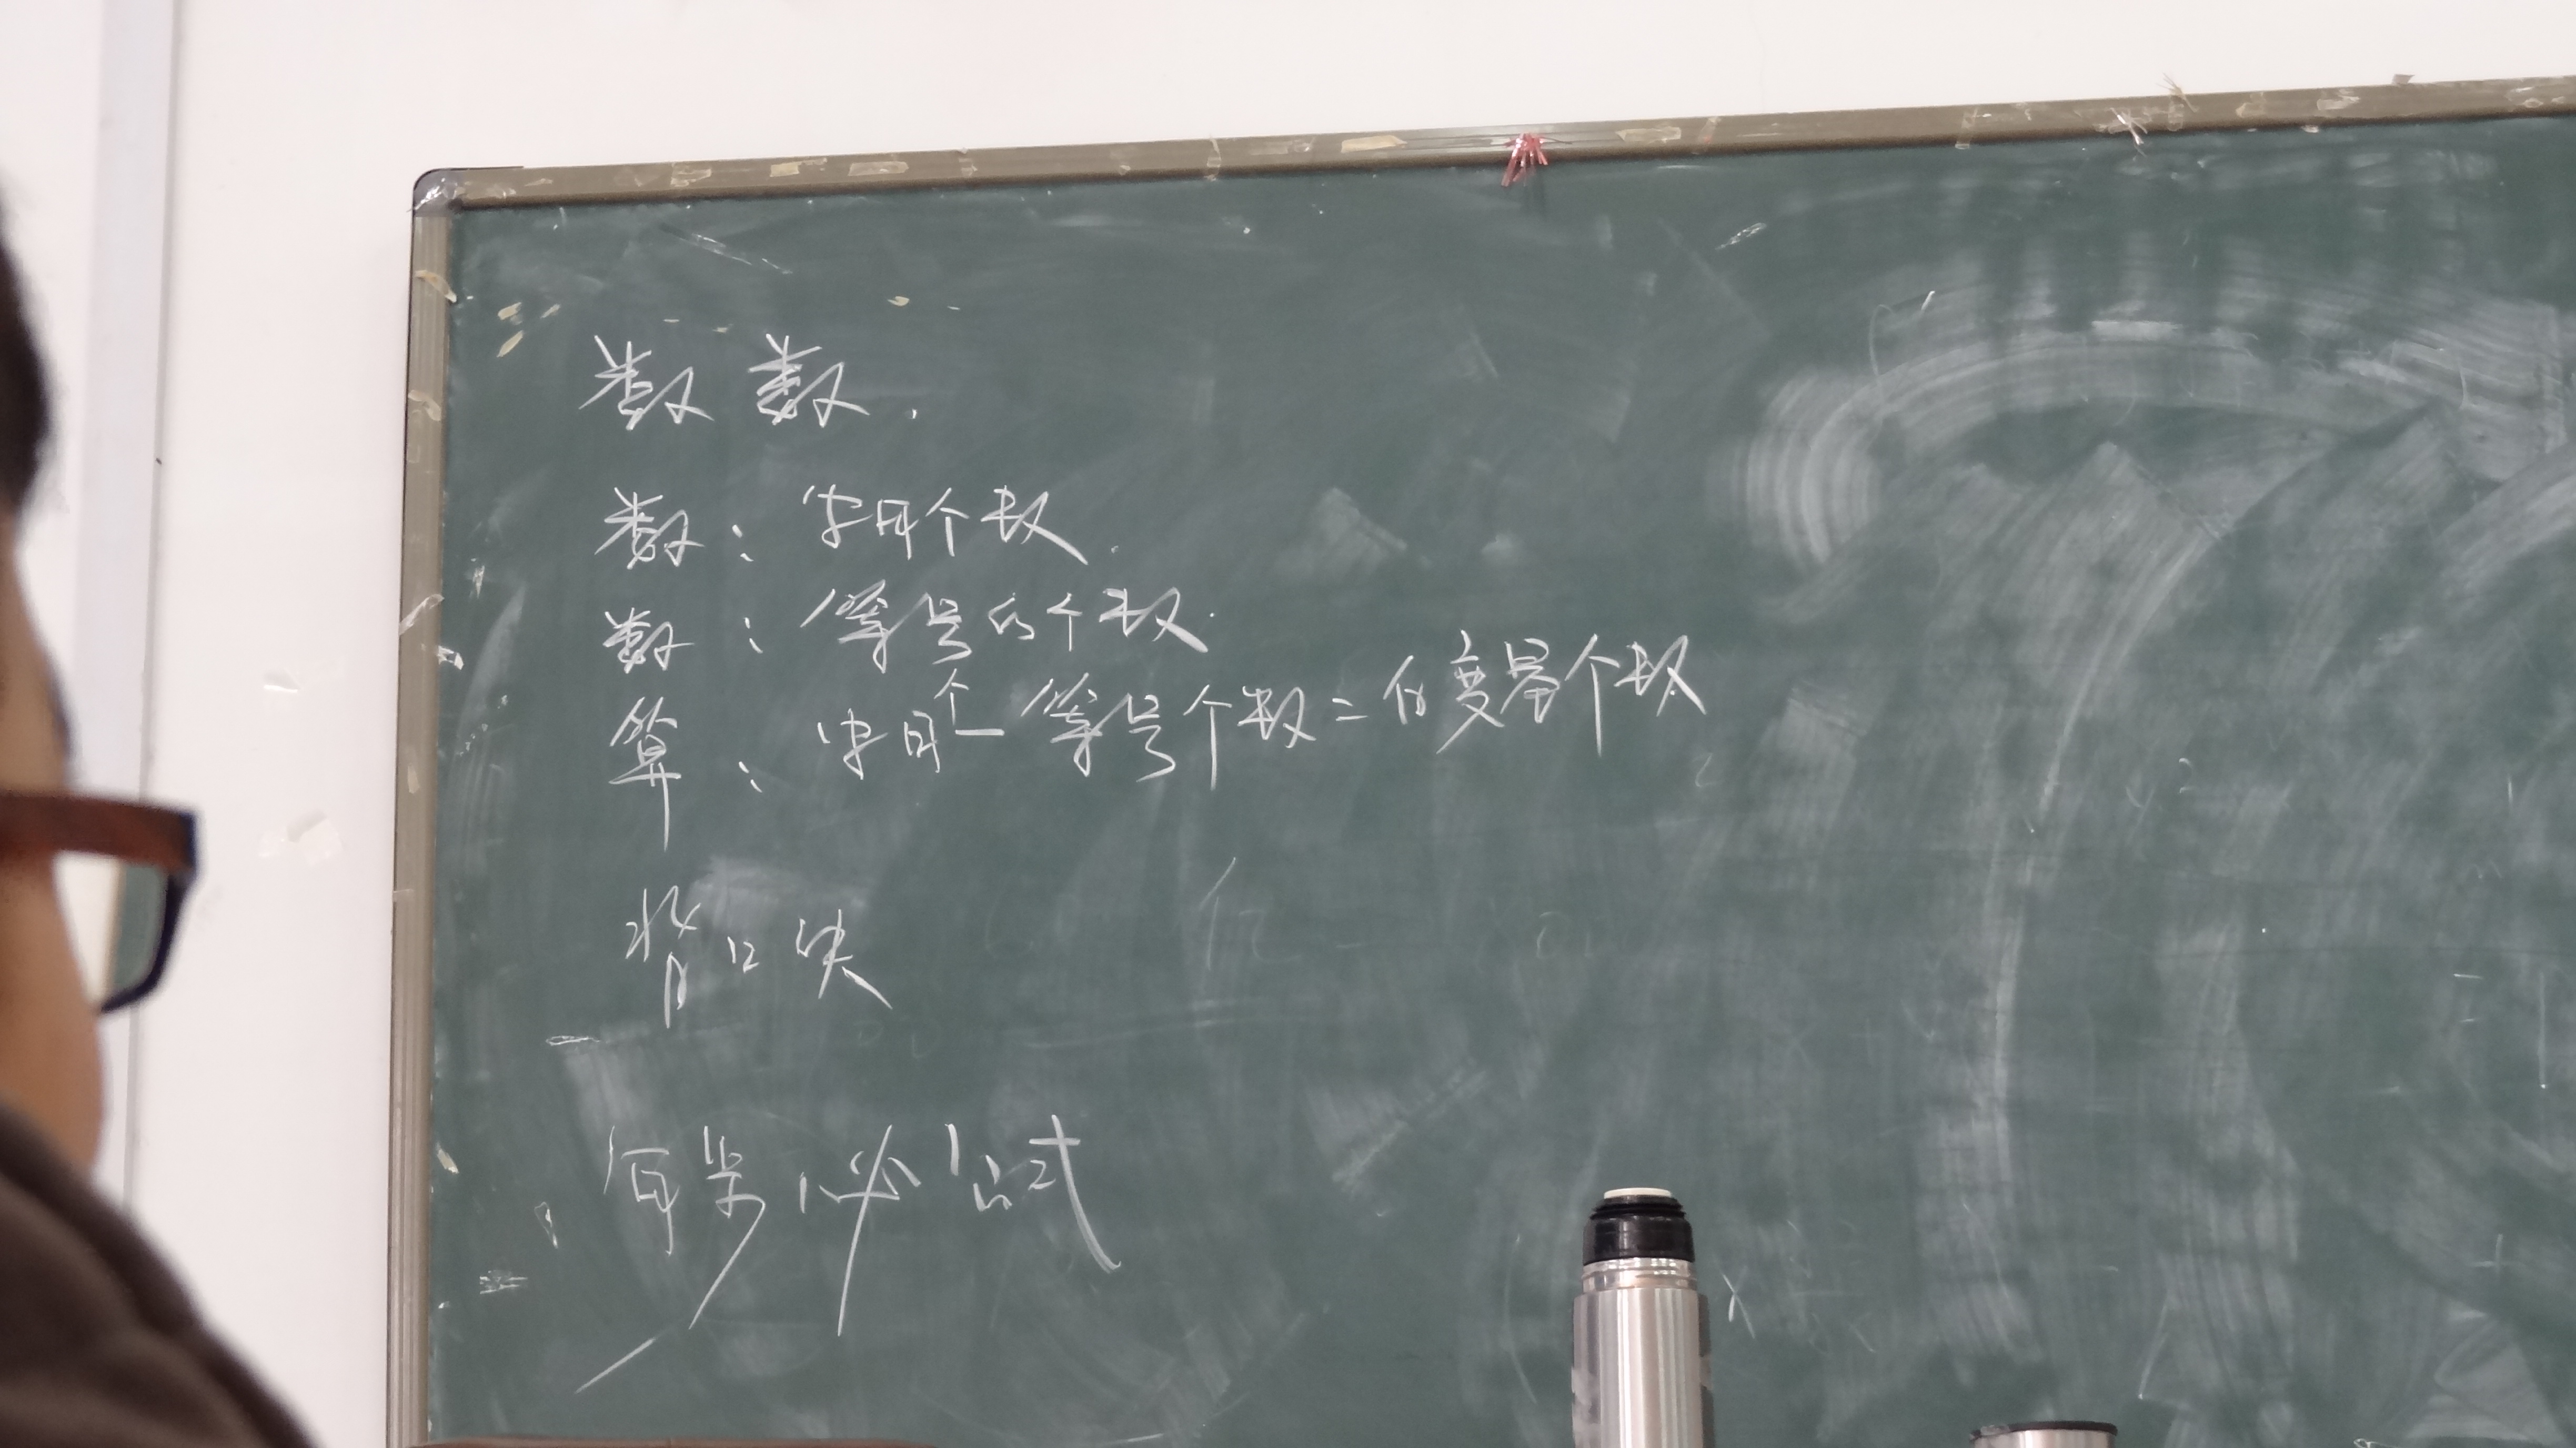 数数.
数: 字母个数.
数: 等号的个数.
算: 字母个一等号个数=自变量个数
背口诀
每步必公式